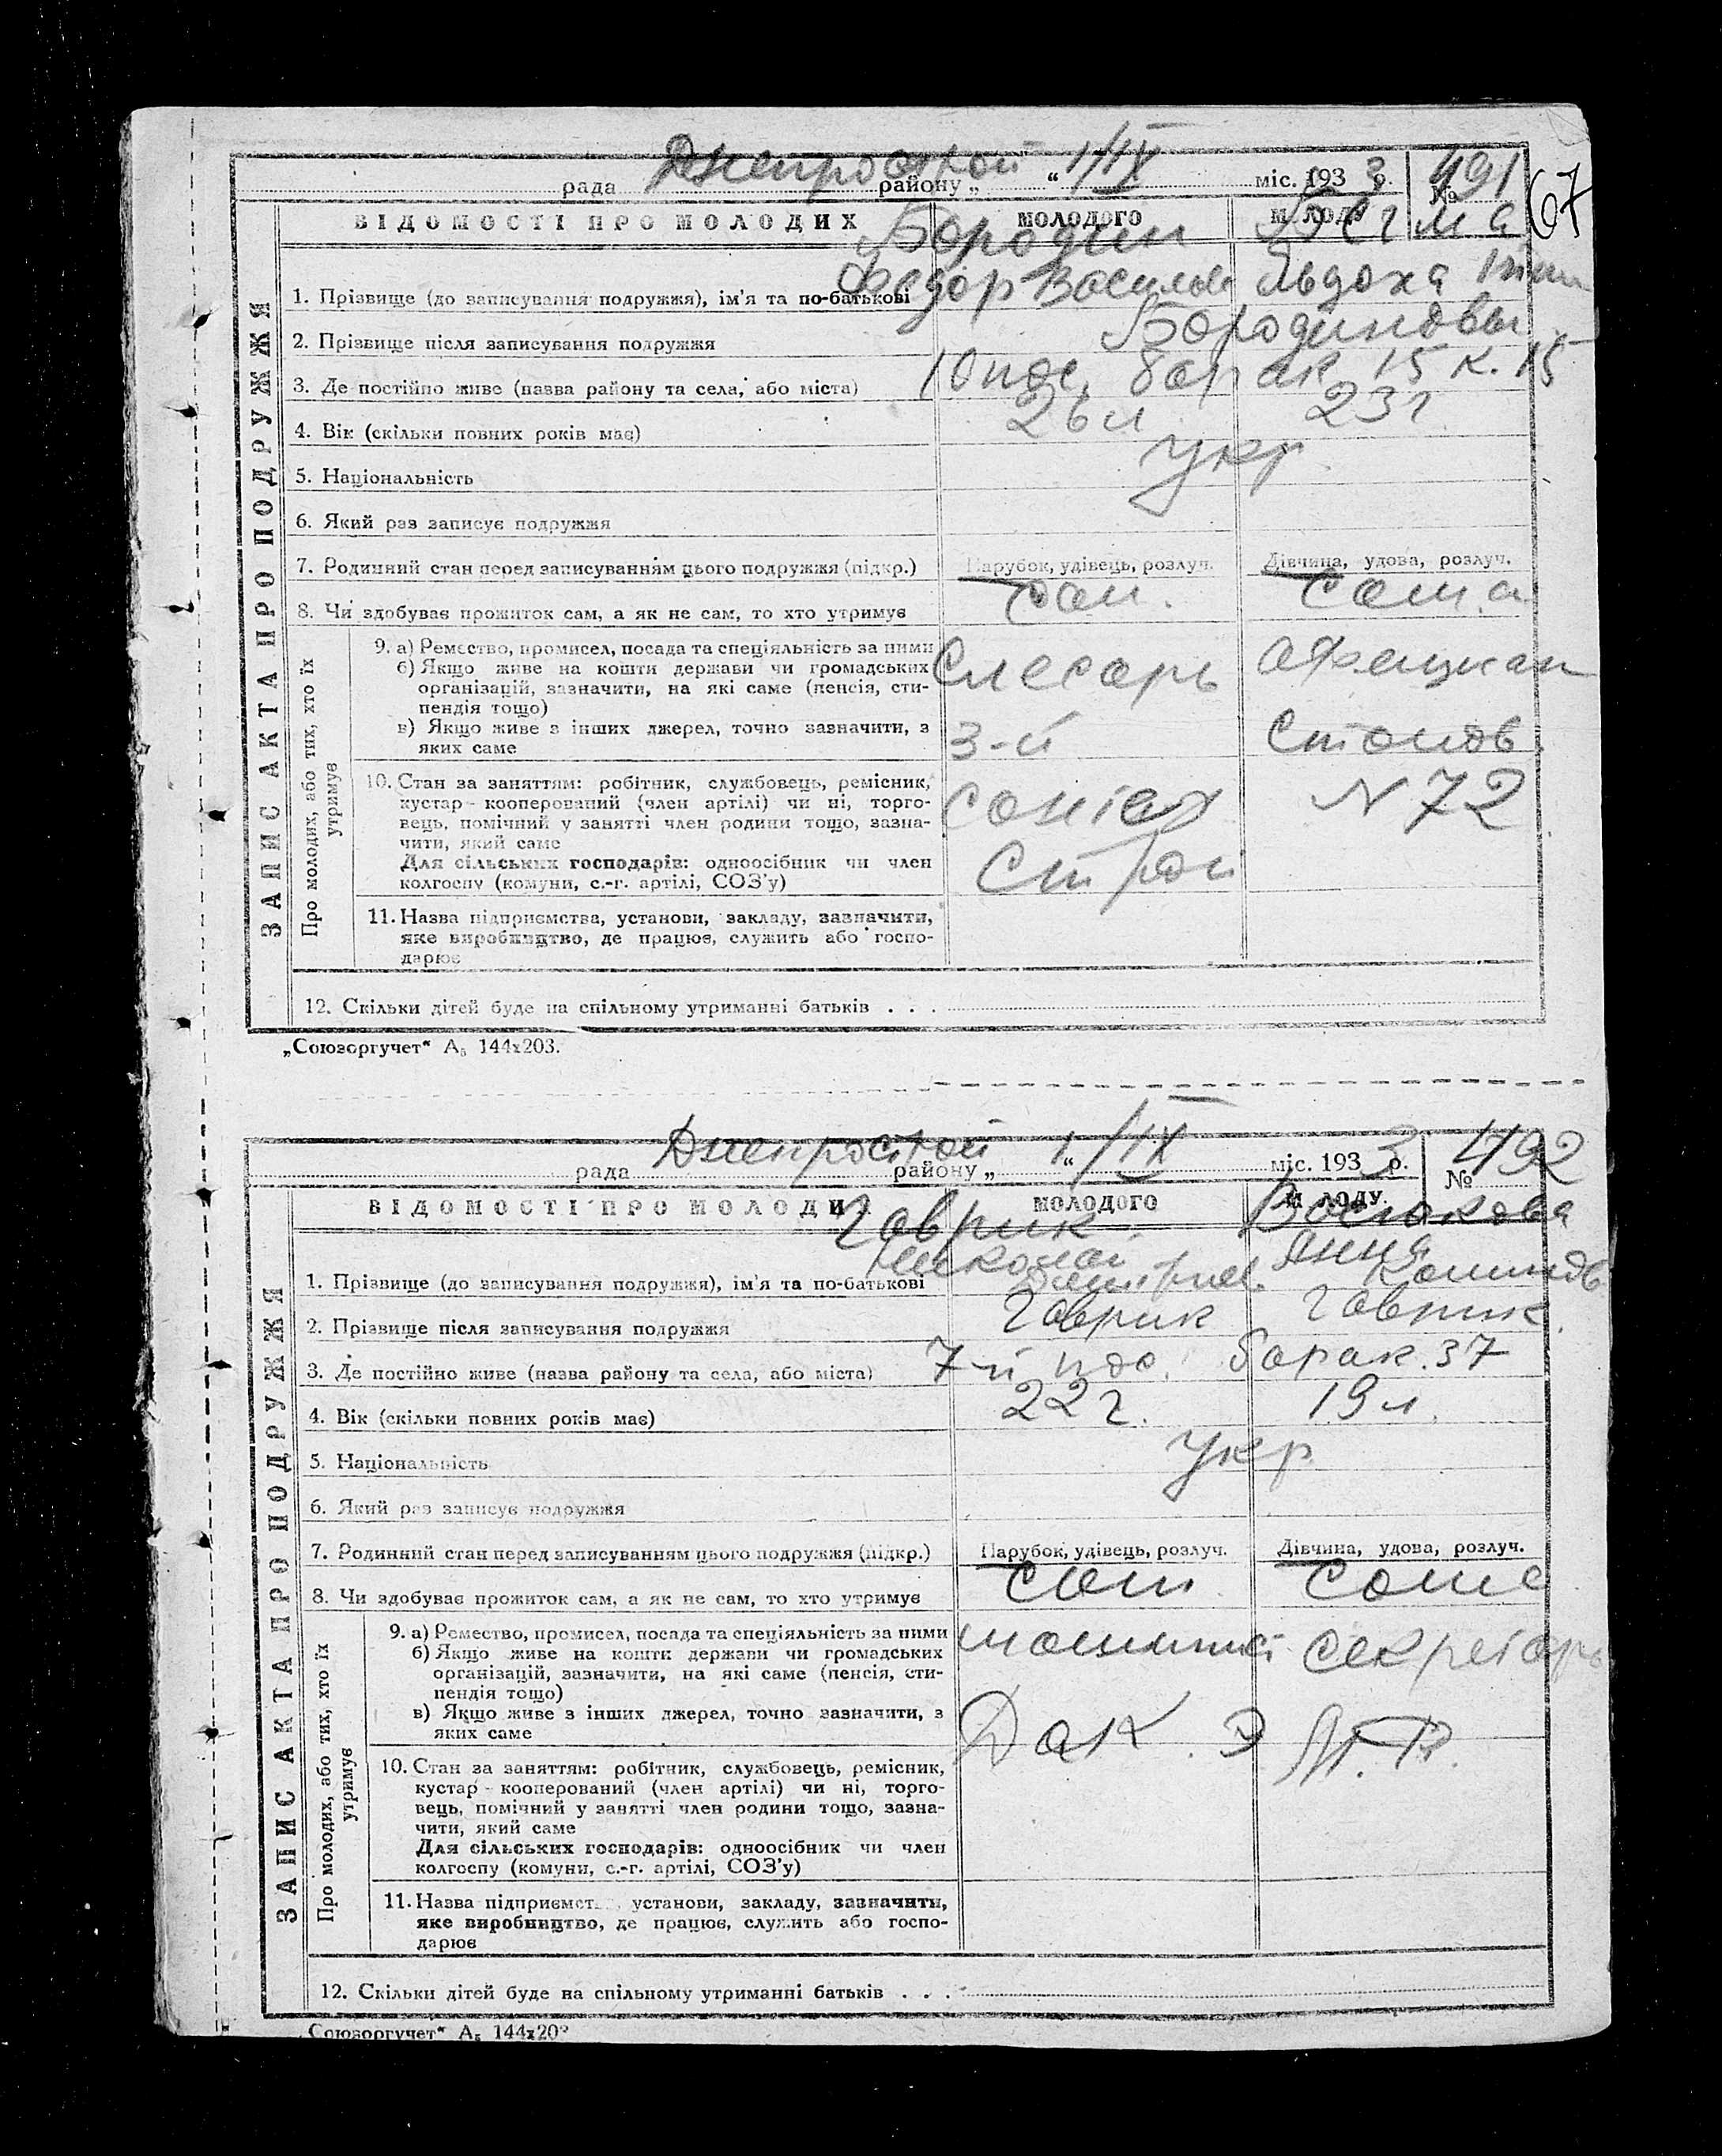 рада Днепрострой району „ “ 1/IX міс. 1933 р. № 491
67
ВІДОМОСТІ ПРО МОЛОДИХ МОЛОДОГО МОЛОДУ
Бородин
Федор Васильев Явдоха
1. Прізвище (до записування подружжя), ім'я та по-батькові
2. Прізвище після записування подружжя Бородиновы
3. Де постійно живе (назва району та села, або міста) 10 пос. барак 15 к. 15
4. Вік (скільки повних років має) 26 л 23 г
5. Національність укр
6. Який раз записує подружжя
7. Родинний стан перед записуванням цього подружжя (підкр.) Парубок, удівець, розлуч. Дівчина, удова, розлуч.
8. Чи здобуває прожиток сам, а як не сам, то хто утримує сам. сама
ЗАПИС АКТА ПРО ПОДРУЖЖЯ
Про молодих, або тих, хто їх утримує
9. а) Ремество, промисел, посада та спеціяльність за ними Слесарь
б) Якщо живе на кошти держави чи громадських
організацій, зазначити, на які саме (пенсія, сти-
пендія тощо)
в) Якщо живе з інших джерел, точно зазначити, з 3-й столов.
яких саме
10. Стан за заняттям: робітник, службовець, ремісник,
кустар-кооперований (член артілі) чи ні, торго- N 72
вець, помічний у занятті член родини тощо, зазна-
чити, який саме
Для сільських господарів: одноосібник чи член строй
колгоспу (комуни, с.-г. артілі, СОЗ'у)
11. Назва підприємства, установи, закладу, зазначити,
яке виробництво, де працює, служить або госпо-
дарює
12. Скільки дітей буде на спільному утриманні батьків . . .
„Союзоргучет“ А₅ 144х203.
рада Днепрострой району „ 1 “ /IX міс. 1933 р. № 492
ВІДОМОСТІ ПРО МОЛОДИХ МОЛОДОГО МОЛОДУ
Гаврик Васюкова
Николай Анна
1. Прізвище (до записування подружжя), ім'я та по-батькові Дмитриев.
2. Прізвище після записування подружжя Гаврик Гаврик.
3. Де постійно живе (назва району та села, або міста) 7-й пос. барак. 37
4. Вік (скільки повних років має) 22 г. 19 л.
5. Національність укр
6. Який раз записує подружжя
7. Родинний стан перед записуванням цього подружжя (підкр.) Парубок, удівець, розлуч. Дівчина, удова, розлуч.
8. Чи здобуває прожиток сам, а як не сам, то хто утримує сам сама
ЗАПИС АКТА ПРО ПОДРУЖЖЯ
Про молодих, або тих, хто їх утримує
9. а) Ремество, промисел, посада та спеціяльність за ними машинист секретарь
б) Якщо живе на кошти держави чи громадських
організацій, зазначити, на які саме (пенсія, сти-
пендія тощо)
в) Якщо живе з інших джерел, точно зазначити, з
яких саме
10. Стан за заняттям: робітник, службовець, ремісник,
кустар-кооперований (член артілі) чи ні, торго-
вець, помічний у занятті член родини тощо, зазна-
чити, який саме
Для сільських господарів: одноосібник чи член
колгоспу (комуни, с.-г. артілі, СОЗ'у)
11. Назва підприємства, установи, закладу, зазначити,
яке виробництво, де працює, служить або госпо-
дарює
12. Скільки дітей буде на спільному утриманні батьків . . .
Союзоргучет“ А₅ 144х203